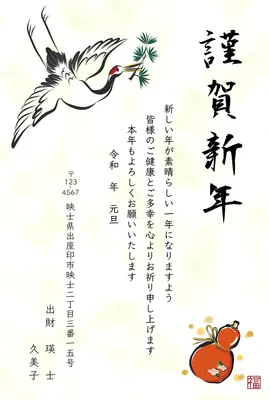 謹賀新年
新しい年が素晴らしい一年になりますよう
皆様のご健康とご多幸を心よりお祈り申し上げます
本年もよろしくお願いいたします
令和　年　元旦
〒
123
4567
映士県出座印市映士二丁目三番一五号
出財　瑛　士
久美子
福